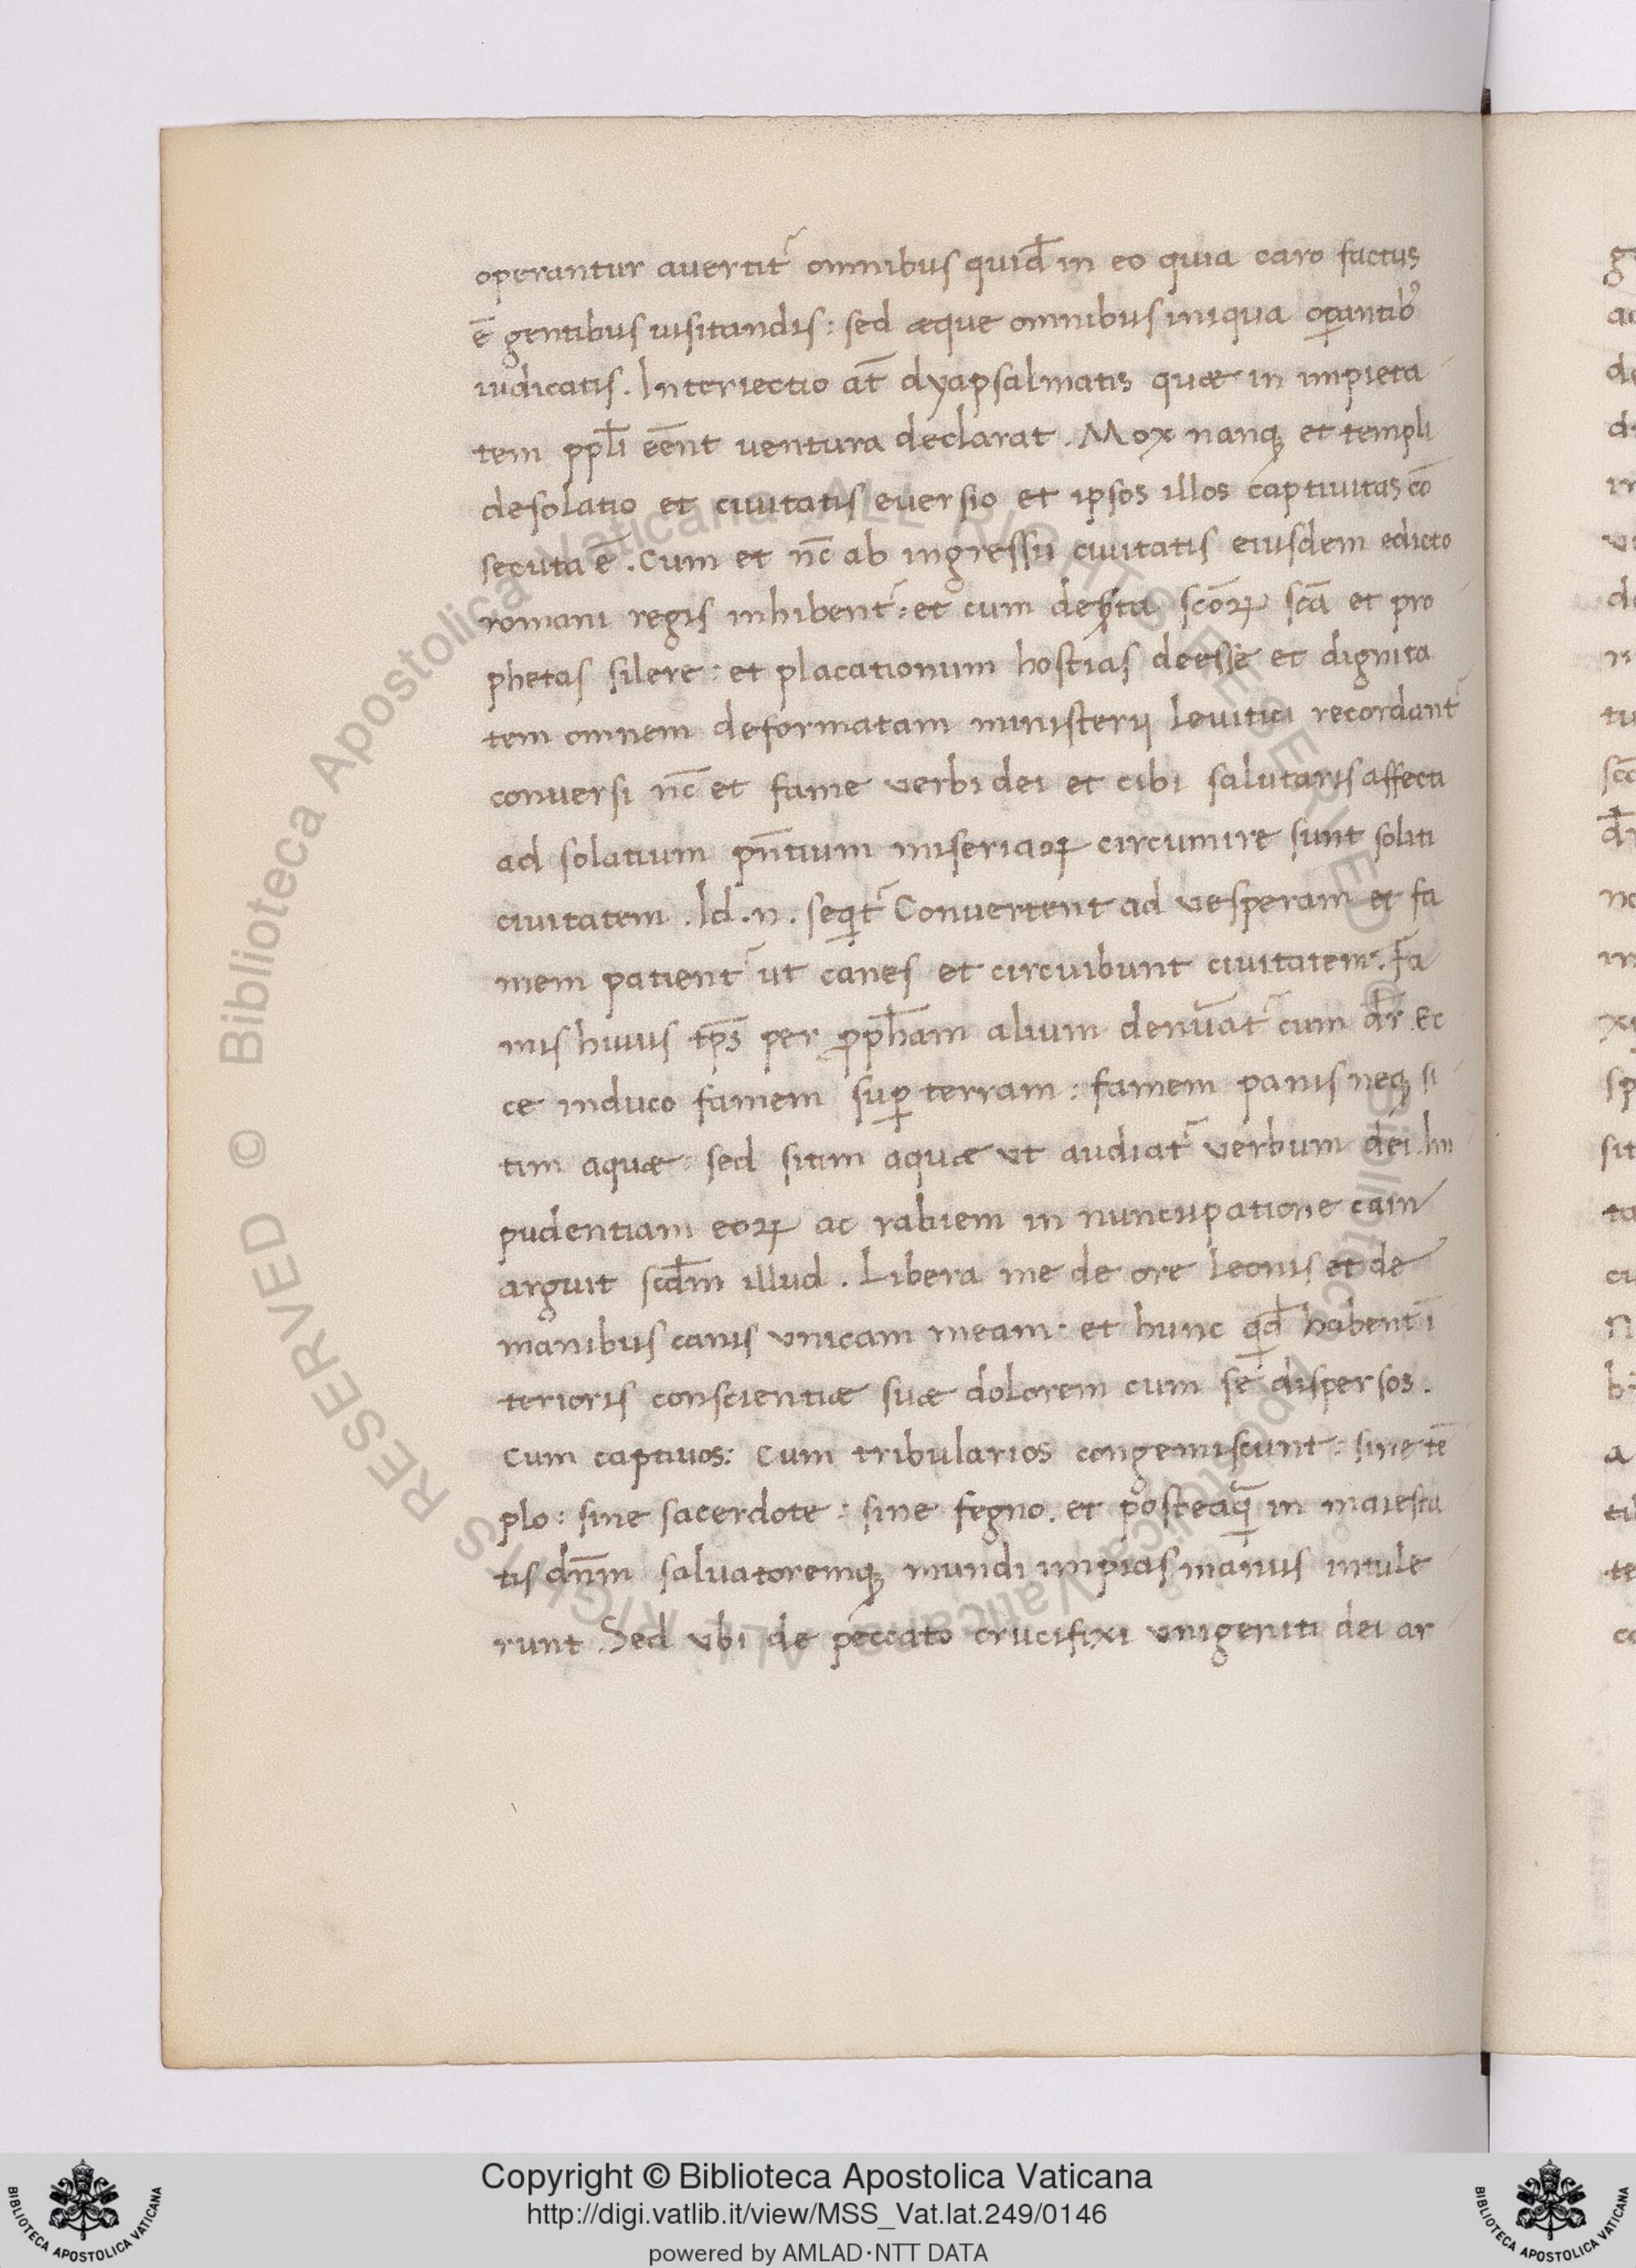 operantur auertit᷑ omnibus quid̄ in eo quia caro factus
ē gentibus uisitandis: sed æque omnibus iniqua oꝑantib᾽
iudicatis. Interiectio at̄ dyapsalmatis quæ in impieta
tem ppl̄i eēnt uentura declarat. Mox nanqꝫ et templi
desolatio et ciuitatis euersio et ipsos illos captiuitas cō
secuta ē. Cum et nc̄ ab ingressu ciuitatis eiusdem edicto
romani regis inhibent᷑: et cum scōꝝ sc̄a et pro
phetas silere: et placationum hostias deesse et dignita
tem omnem deformatam ministerij leuitici recordant᷑
conuersi nc̄ et fame verbi dei et cibi salutaris affecti
ad solatium pn̄tium miseriaꝝ circumire sunt soliti
ciuitatem. Id .n. seqt᷑ Conuertent ad vesperam et fa
mem patient᷑ ut canes et circuibunt ciuitatem. Fa
mis huius tp̄s per ꝓph̄am alium denūat᷑ cum dr̄. Ec
ce induco famem suꝑ terram: famem panis neqꝫ si
tim aquæ: sed sitim aquæ vt audiat᷑ verbum dei. Im
pudentiam eoꝝ ac rabiem in nuncupatione cam
arguit scd̄m illud. Libera me de ore leonis et de
manibus canis vnicam meam: et hunc qd̄ habent ī
terioris conscientiæ suæ dolorem cum se dispersos.
Cum captiuos: Cum tribularios congemiscunt: sine tē
plo: sine sacerdote: sine fegno. et posteaꝗ̄ in maiesta
tis dn̄m saluatoremqꝫ mundi impias manus intule
runt. Sed vbi de peccato crucifixi vnigeniti dei ar
© Biblioteca Apostolica Vaticana ALL RIGHTS RESERVED
© Biblioteca Apostolica Vaticana ALL RIGHTS RESERVED
Copyright © Biblioteca Apostolica Vaticana
http://digi.vatlib.it/view/MSS_Vat.lat.249/0146
powered by AMLAD·NTT DATA
BIBLIOTECA APOSTOLICA VATICANA
BIBLIOTECA APOSTOLICA VATICANA